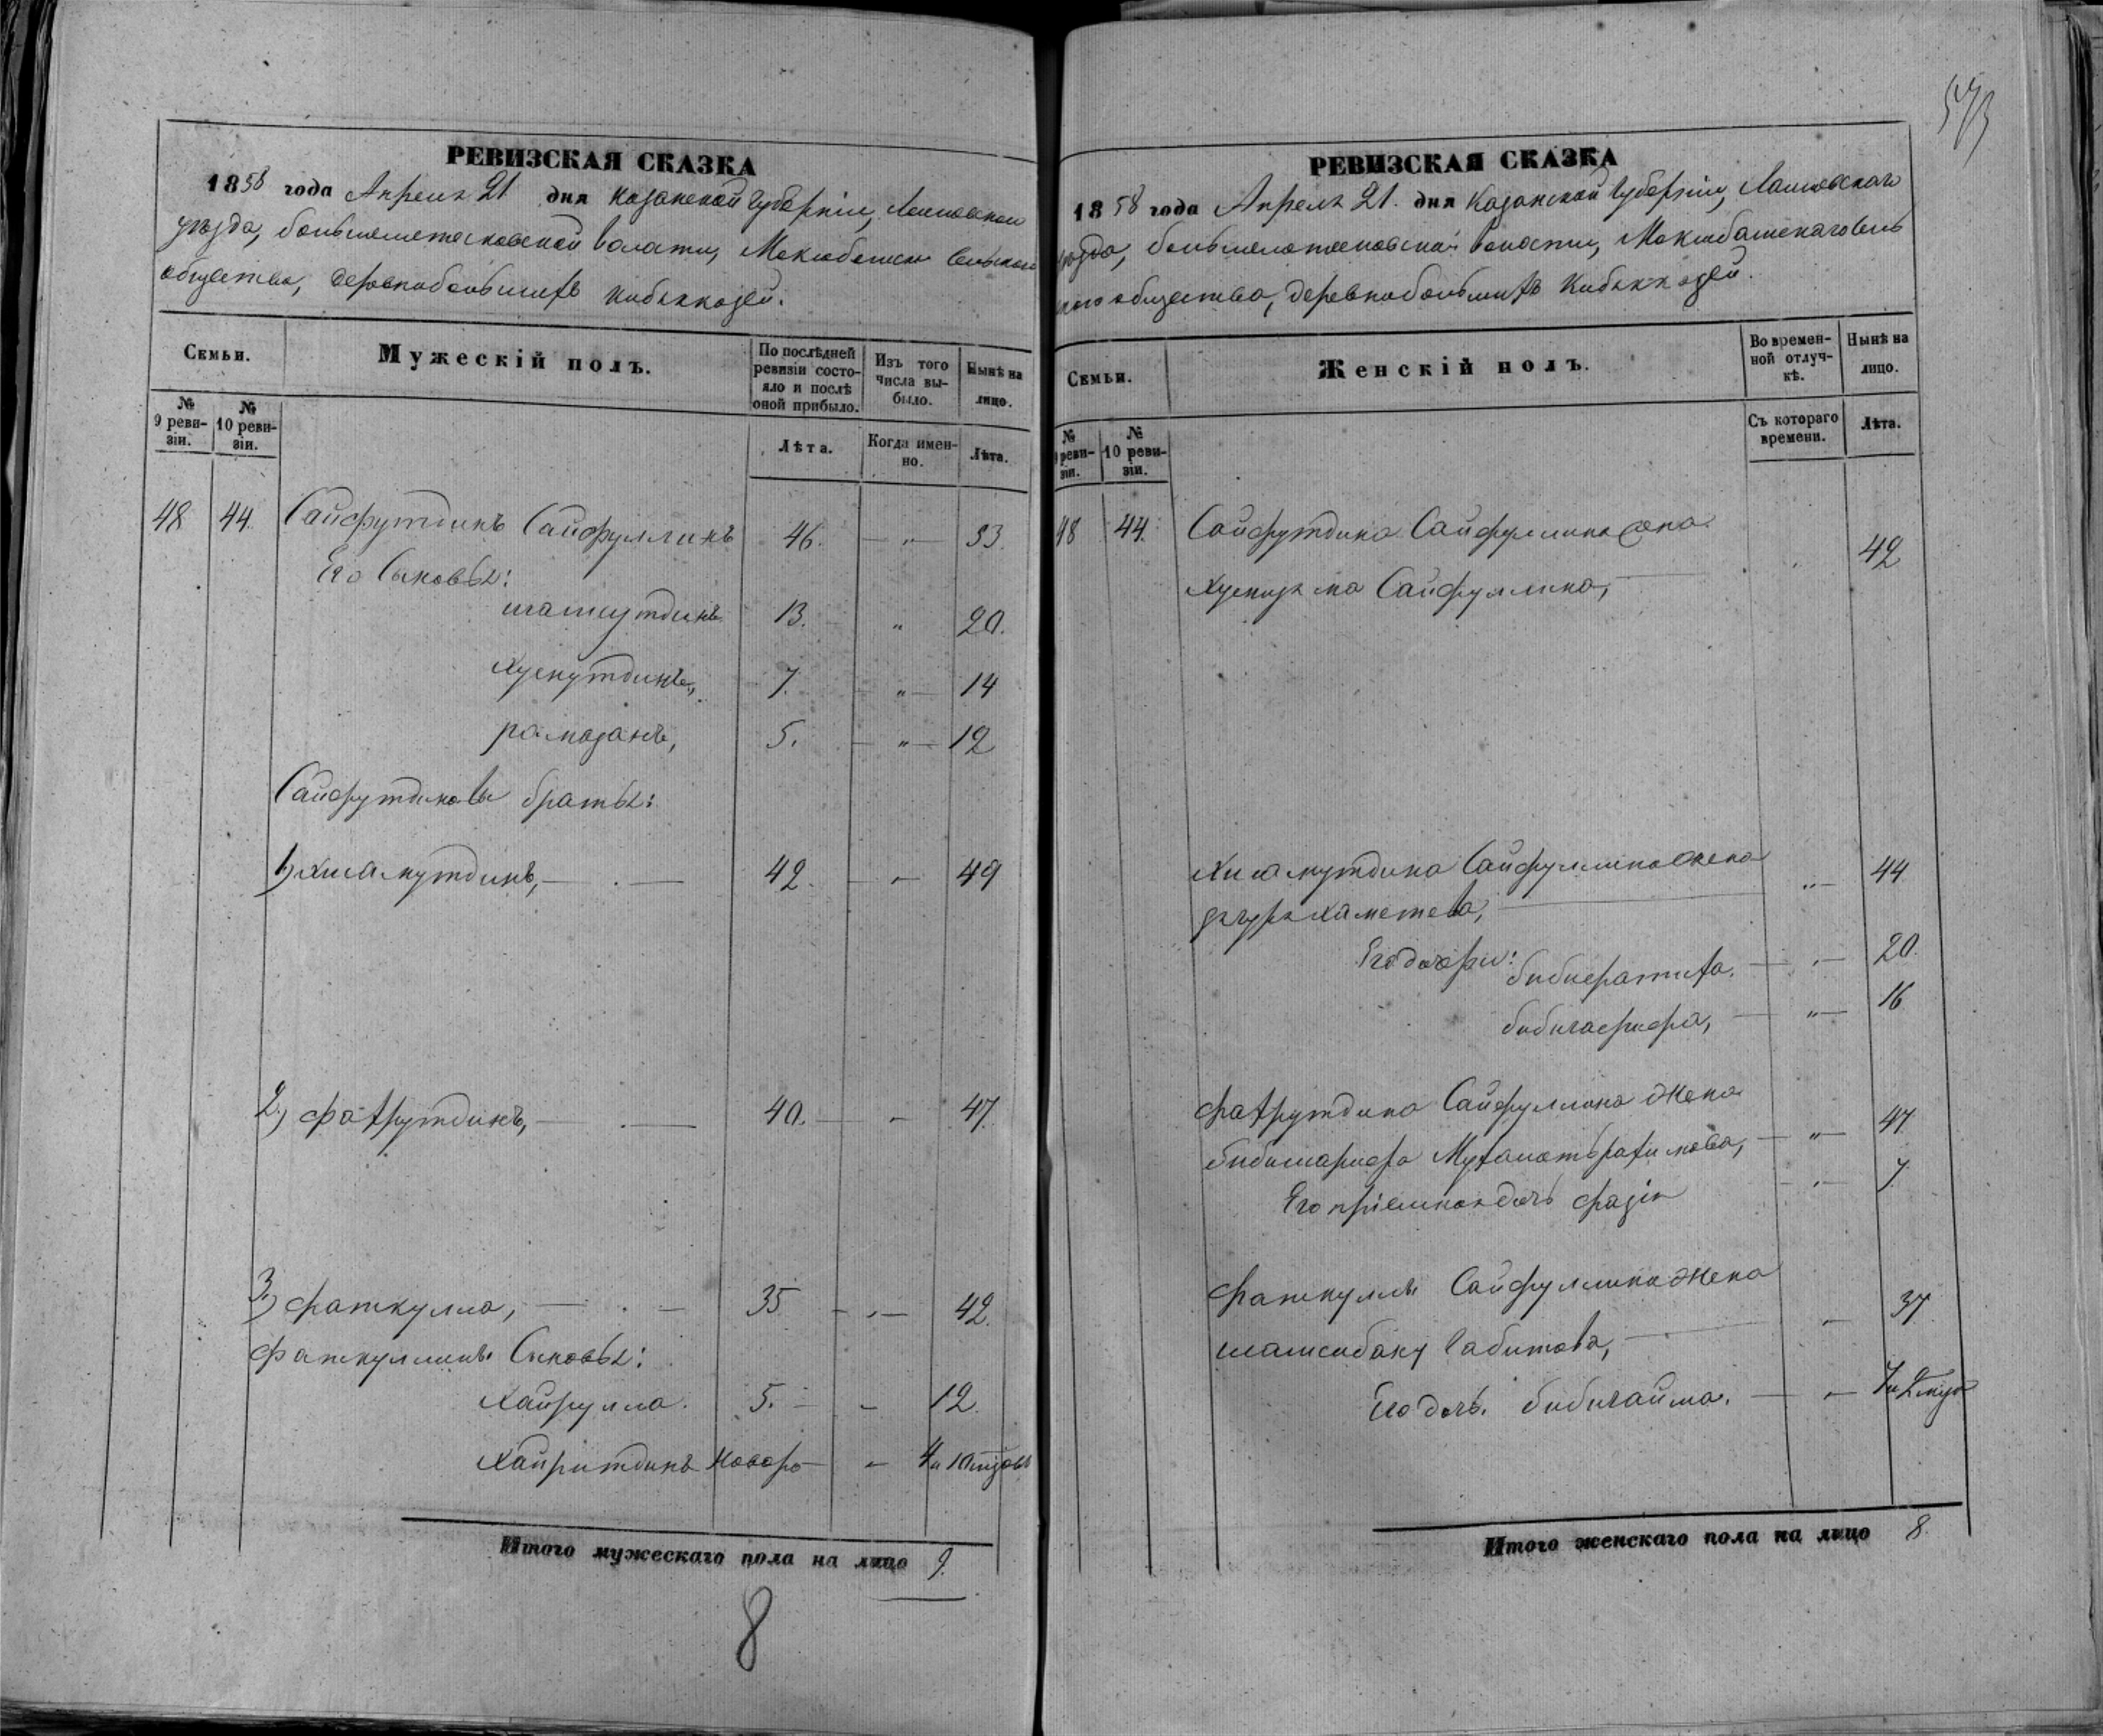 573
РЕВИЗСКАЯ СКАЗКА
1858 года Апреля 21 дня Казанской Губерніи, Лаишевскаго
уѣзда, большеметесковской волости, Сельскаго
общества, деревни большихъ Кибякозей.
Семьи.
Мужескій полъ.
По послѣдней ревизіи состояло и послѣ оной прибыло.
Изъ того числа выбыло.
Нынѣ на лицо.
№ 9 ревизіи.
№ 10 ревизіи.
Лѣта.
Когда именно.
Лѣта.
48 44. Сайфутдинъ Сайфуллинъ 46. — „ — 53.
Его Сыновья:
шамсутдинъ 13. „ 20.
Хуснутдинъ, 7. — „ — 14
рамазанъ, 5. — „ — 12
Сайфутдиновы братья:
1) хисамутдинъ, — . — 42. — „ — 49
2) фахрутдинъ, — . — 40. — „ 47.
3) фаткулла, — . — 35 — „ — 42.
фаткуллины Сыновья:
Хайрулла. 5. — „ 12.
Хайритдинъ новоро — „ 4 и 10 мѣсяовъ
Итого мужескаго пола на лицо 9.
8
РЕВИЗСКАЯ СКАЗКА
1858 года Апреля 21. дня Казанской Губерніи, Лаишевскаго
уѣзда, волости, Сель
скаго общества, деревни большихъ Кибякозей.
Семьи.
Женскій полъ.
Во временной отлучкѣ.
Нынѣ на лицо.
№ 9 ревизіи.
№ 10 ревизіи.
Съ котораго времени.
Лѣта.
48 44. Сайфутдина Сайфуллина жена
Сайфуллина, — 42
Хисамутдина Сайфуллина жена
— „ — 44
Его дочери: бибилатифа. — „ — 20.
— „ — 16
фахрутдина Сайфуллина жена
бибишарифа — „ — 47.
Его пріемная дочь фазія — „ — 7.
фаткуллы Сайфуллина жена
Габитова, — „ 37
Его дочь. — „ — 7 и 2 мѣся
Итого женскаго пола на лицо 8.